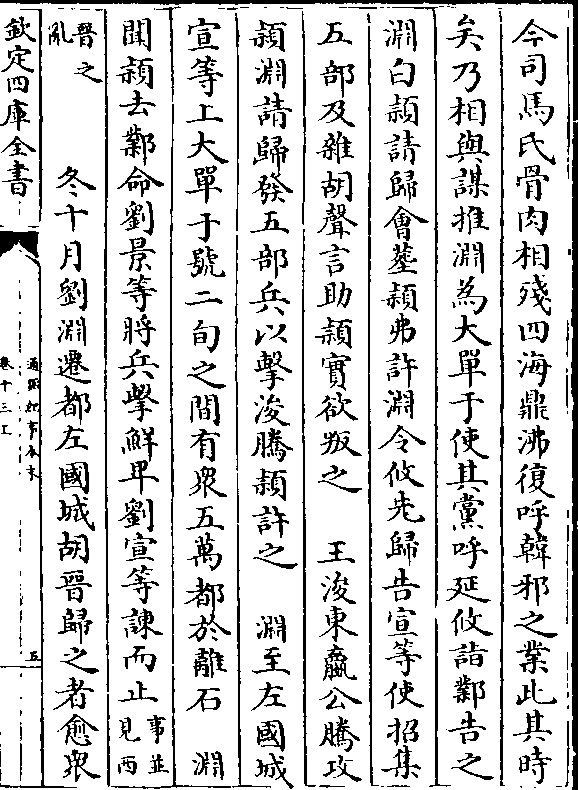 今司馬氏骨肉相殘四海鼎沸復呼韓邪之業此其時
矣乃相與謀推淵為大單于使其黨呼延攸詣鄴告之
淵白穎請歸會葬穎弗許淵令攸先歸告宣等使招集
五部及雜胡聲言助穎實欲叛之　王浚東嬴公騰攻
穎淵請歸發五部兵以擊浚騰穎許之　淵至左國城
宣等上大單于號二旬之間有衆五萬都於離石　淵
聞穎去鄴命劉景等將兵擊鮮卑劉宣等諫而止事並見西
晉之亂　冬十月劉淵遷都左國城胡晉歸之者愈衆
欽定四庫全書
通鑑紀事本末
卷十三上
五